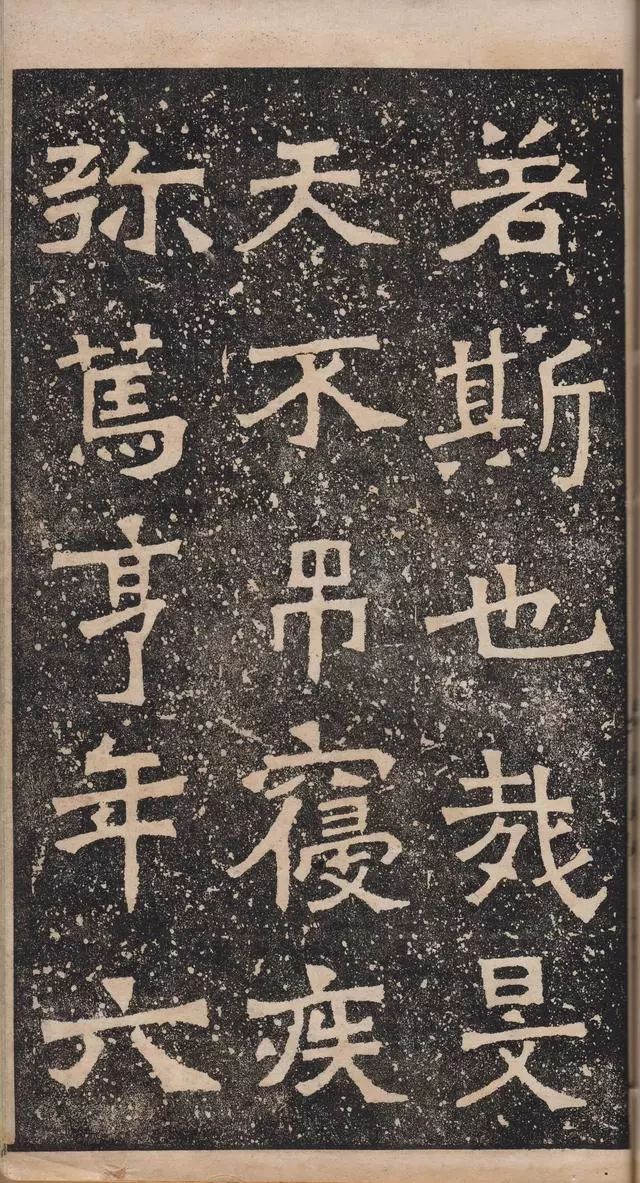 若斯也哉旻
天不吊寝疾
弥篤亨年六